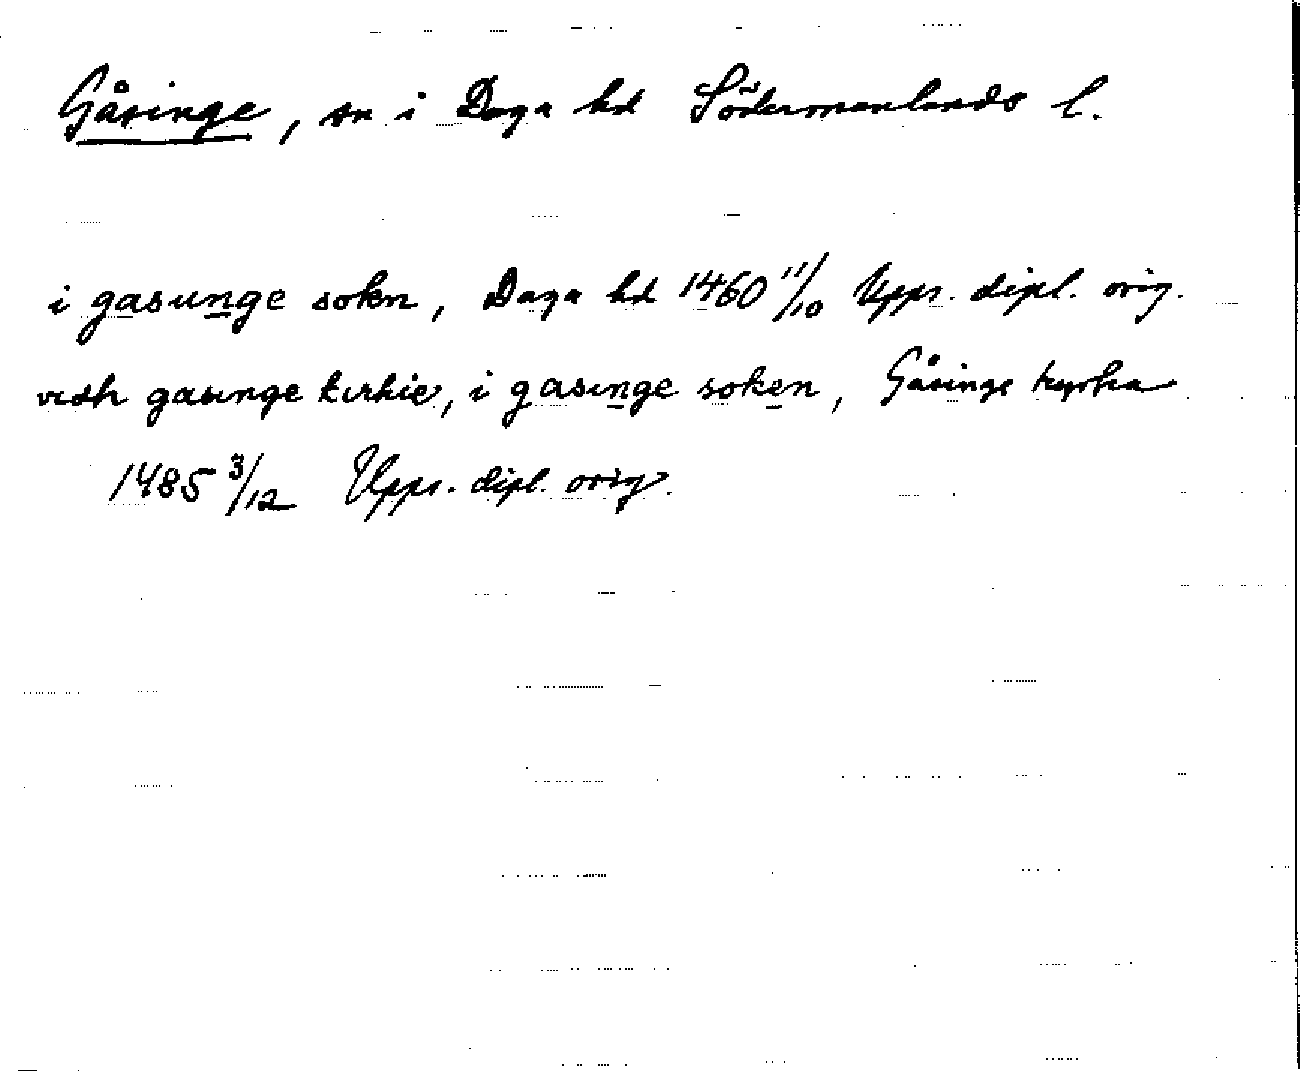 Gåsinge, sn i Daga hd Södermanlands l.
i gasunge sokn, Daga hd 1460 11/10 Upps. dipl. orig.
vidh gasinge kirkie, i gasinge soken, Gåsinge kyrka
1485 3/12 Upps. dipl. orig.